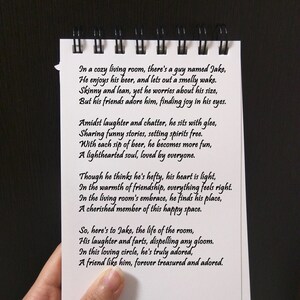 In a cozy living room, there's a guy named Jake,
He enjoys his beer, and lets out a smelly wake.
Skinny and lean, yet he worries about his size,
But his friends adore him, finding joy in his eyes.

Amidst laughter and chatter, he sits with glee,
Sharing funny stories, setting spirits free.
With each sip of beer, he becomes more fun,
A lighthearted soul, loved by everyone.

Though he thinks he's hefty, his heart is light,
In the warmth of friendship, everything feels right.
In the living room's embrace, he finds his place,
A cherished member of this happy space.

So, here's to Jake, the life of the room,
His laughter and farts, dispelling any gloom.
In this loving circle, he's truly adored,
A friend like him, forever treasured and adored.